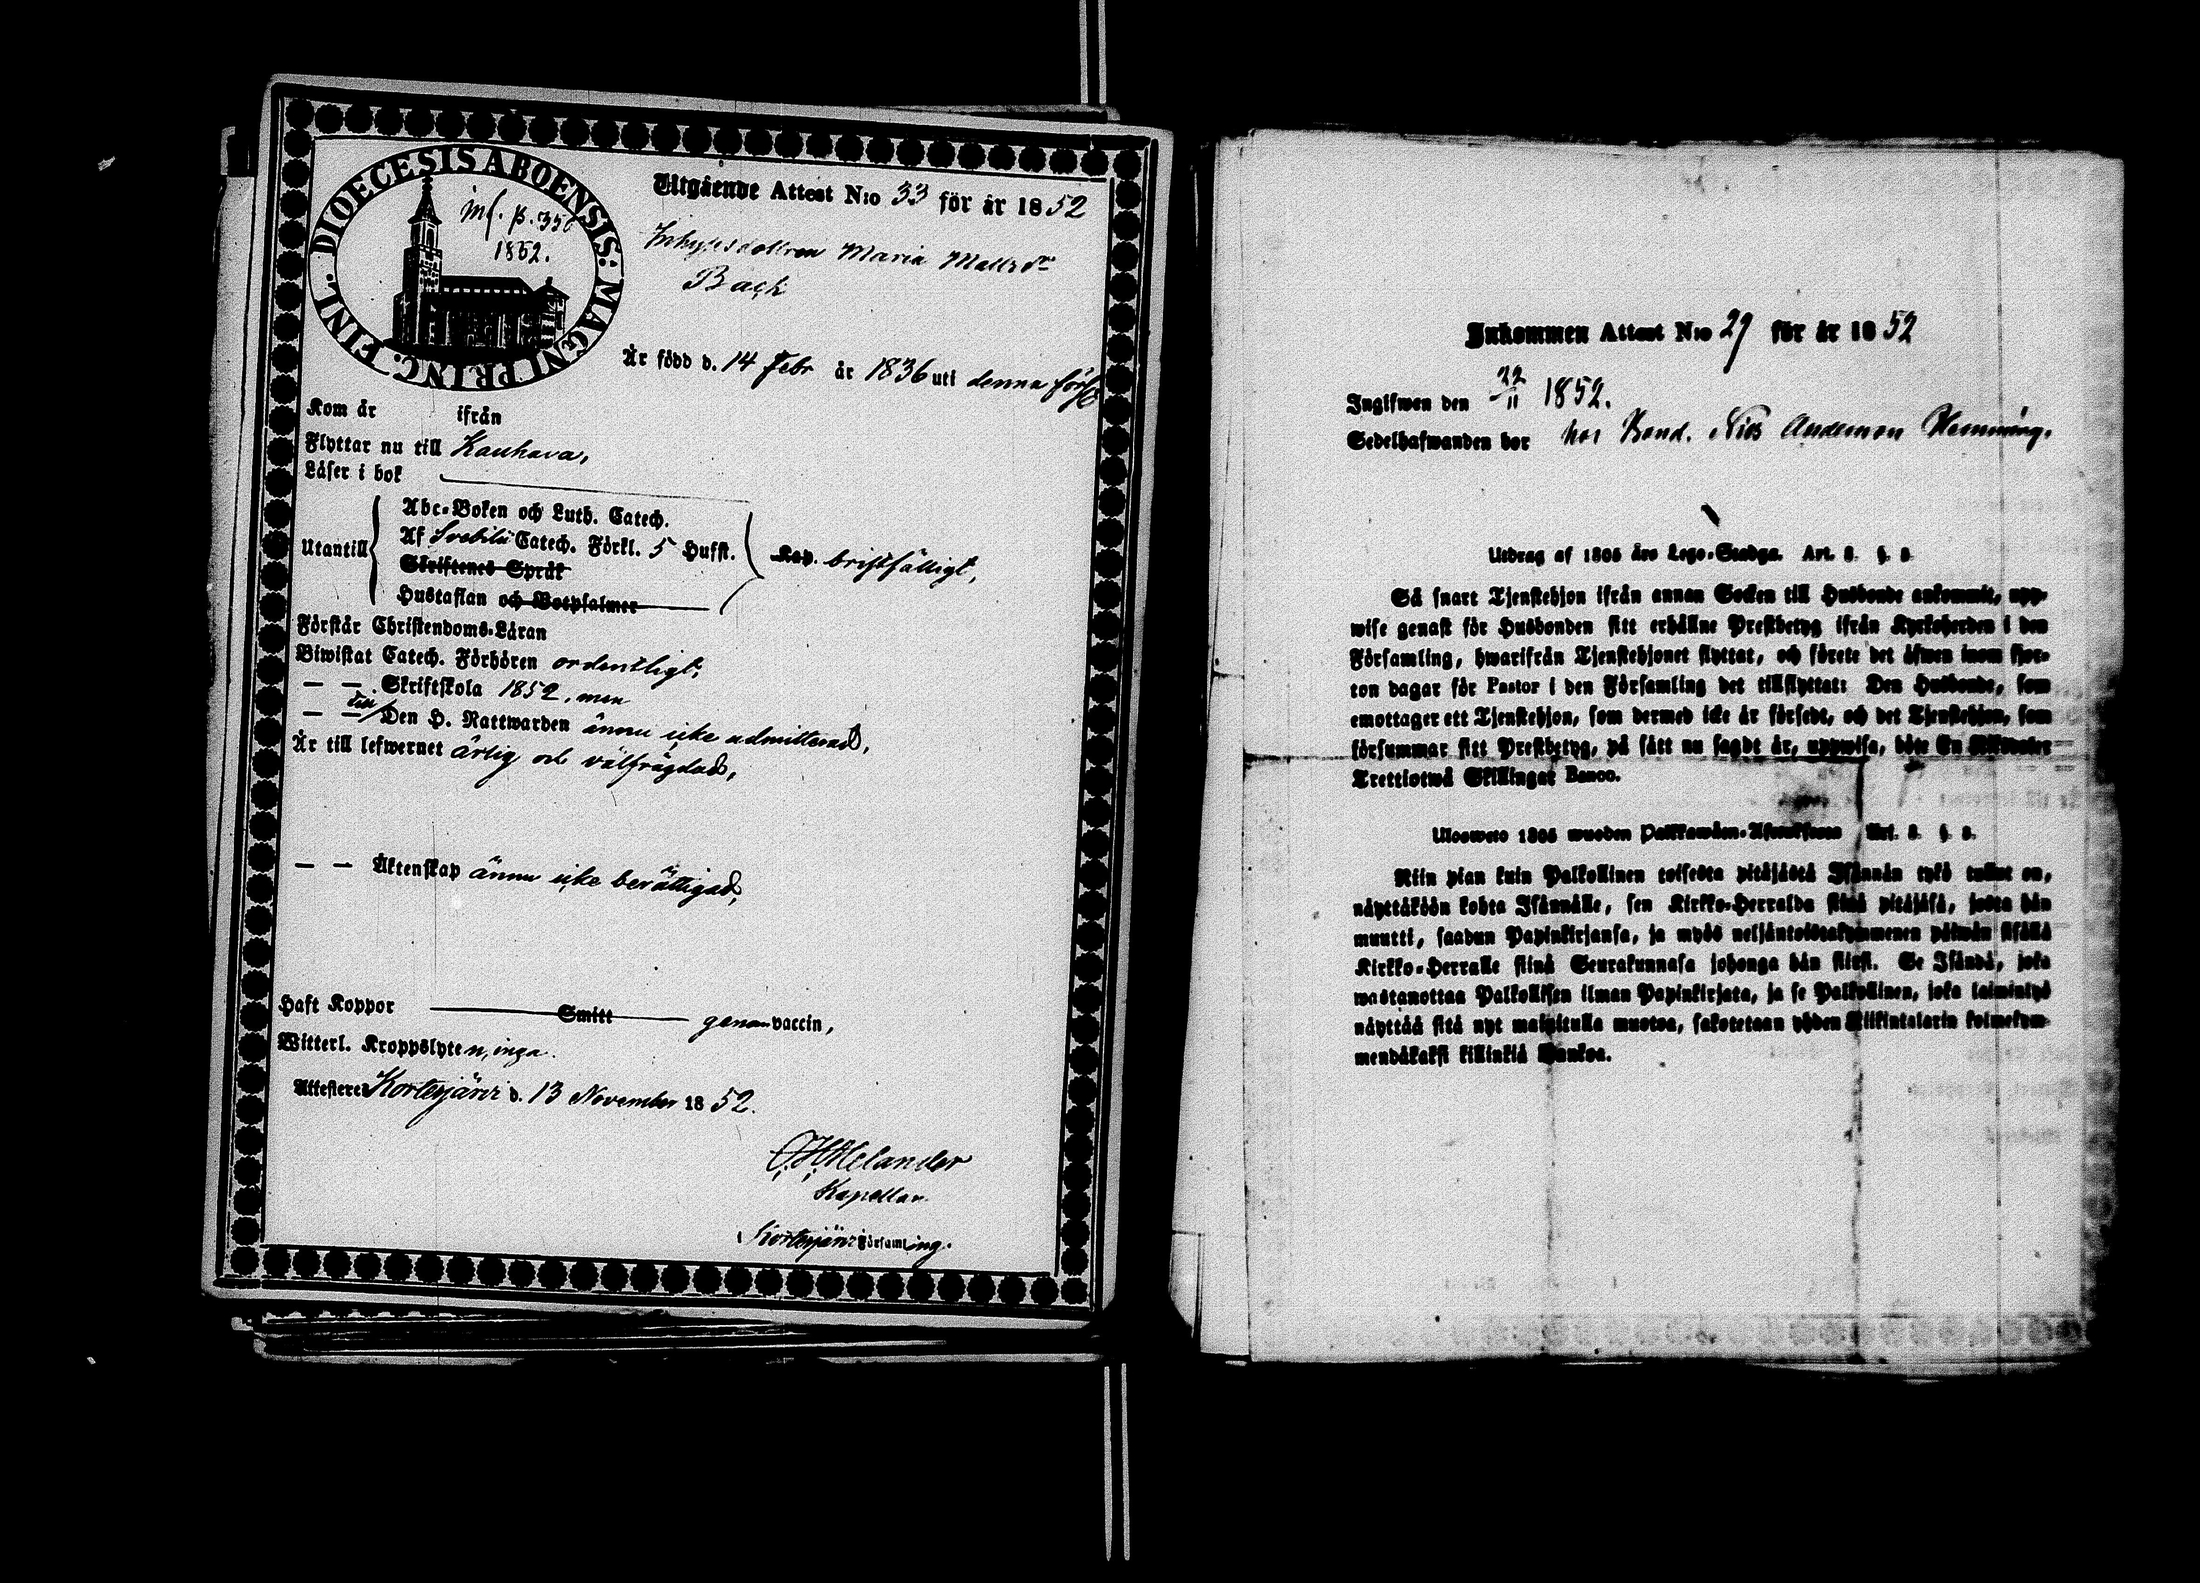 DIOECESIS ABOENSIS: MAGNI PRINC. FINL.
inf. p. 356
1852.
Utgående Attest N:o 33 för år 1852
Inhysesdottren Maria Mattsdr
Back
Är född d. 14 Febr år 1836 uti denna förs:
Kom år ifrån
Flyttar nu till Kauhava,
Läser i bok
Utantill
Abc-Boken och Luth. Catech.
Af Svebilii Catech. Förkl. 5 Hufst.
Skriftenes Språk
Hustaflan och Botpsalmer
Kap. bristfälligt,
Förstår Christendoms-Läran
Biwistat Catech. Förhören ordentligt,
— — Skriftskola 1852, men
— — till Den H. Nattwarden ännu icke admitterad,
Är till lefwernet ärlig och välfrägdad,
— — Äktenskap ännu icke berättigad,
Haft Koppor Smitt genom vaccin,
Witterl. Kroppslyten, inga.
Attesteres Kortesjärvi d. 13 November 1852.
C. H. Melander
Kapellan
i Kortesjärvi Församling.
Inkommen Attest N:o 29 för år 1852
Ingifwen den 22/11 1852.
Sedelhafwanden bor hos Bond. Nils Andersson Hemming.
Utdrag af 1805 års Lego-Stadga. Art. 8. §. 8
Så snart Tjenstehjon ifrån annan Socken till Husbonde ankommit, upp-
wise genast för Husbonden sitt erhållne Prestbetyg ifrån Kyrkoherden i den
Församling, hwarifrån Tjenstehjonet flyttat, och förete det äfwen inom fjor-
ton dagar för Pastor i den Församling det tillflyttat: Den Husbonde, som
emottager ett Tjenstehjon, som dermed icke är försedt, och det Tjenstehjon, som
försummar sitt Prestbetyg, på sätt nu sagdt är, uppwisa, böte En Riksdaler
Trettiotwå Skillingar Banco.
Ulosweto 1805 wuoden Palkkawäen-Asetuksesta Art. 8. §. 8.
Niin pian kuin Palkollinen toisesta pitäjästä Isännän tykö tullut on,
näyttäköön kohta Isännälle, sen Kirkko-Herralda siinä pitäjäsä, josta hän
muutti, saadun Papinkirjansa, ja myös neljäntoistakymmenen päiwän sisällä
Kirkko-Herralle siinä Seurakunnasa johonga hän siirsi. Se Isändä, joka
wastanottaa Palkollisen ilman Papinkirjata, ja se Palkollinen, joka laimintyö
näyttää sitä nyt mainitulla muotoa, sakotetaan yhden Riikintalarin kolmekym-
mendäkaksi killinkiä Bankoa.